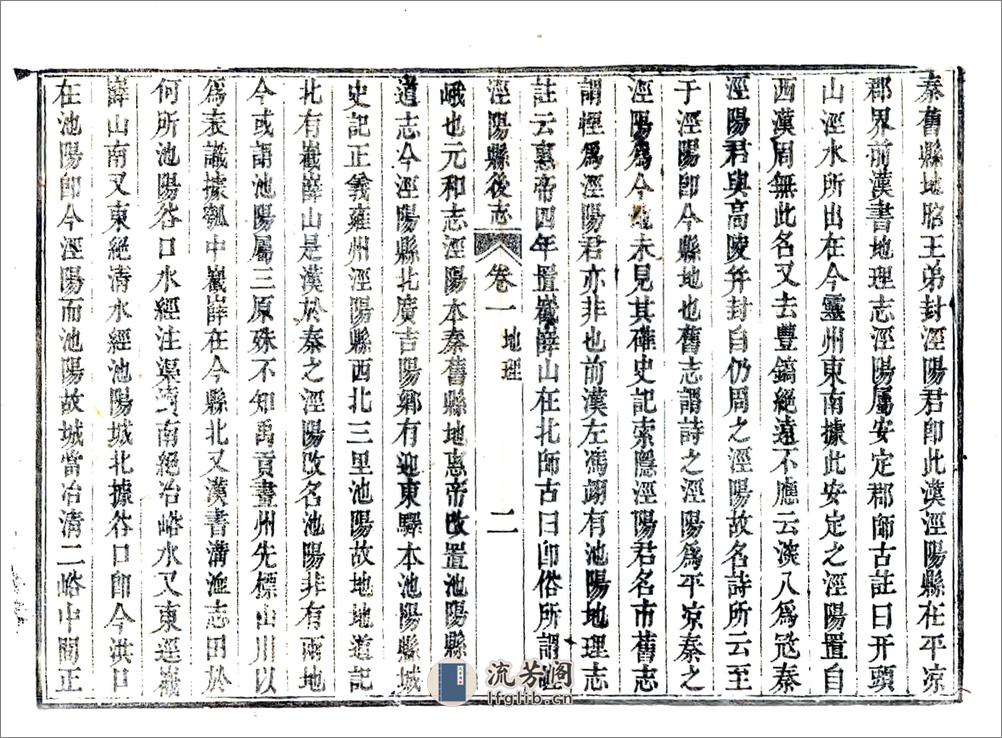 秦舊縣地昭王弟封涇陽君卽此漢涇陽縣在平凉
郡界前漢書地理志涇陽屬安定郡師古註曰幵頭
山涇水所出在今靈州東南據此安定之涇陽置自
西漢周無此名又去豐鎬絕遠不應云深入爲冦秦
涇陽君與高陵幷封自仍周之涇陽故名詩所云至
于涇陽卽今縣地也舊志謂詩之涇陽爲平凉秦之
涇陽爲今地未見其確史記索隱涇陽君名市舊志
謂悝爲涇陽君亦非也前漢左馮翊有池陽地理志
註云惠帝四年置巀嶭山在北師古曰卽俗所謂嵯
涇陽縣後志 卷一 地理 二
峨也元和志涇陽本秦舊縣地惠帝改置池陽縣
道志今涇陽縣北廣吉陽鄉有迎東驛本池陽縣城
史記正義雍州涇陽縣西北三里池陽故地地道記
北有巀嶭山是漢於秦之涇陽改名池陽非有兩地
今或謂池陽屬三原殊不知禹貢畫州先標山川以
爲表識據瓠中巀嶭在今縣北又漢書溝洫志田於
何所池陽谷口水經注渠瀆南絕冶峪水又東逕巀
嶭山南又東絕清水經池陽城北據谷口卽今洪口
在池陽卽今涇陽而池陽故城當冶清二峪中間正
流芳阁
lfglib.cn